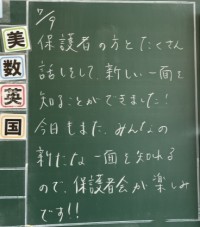 7/9
保護者の方とたくさん
話しをして、新しい一面を
知ることができました!
今日もまた、みんなの
新たな一面を知れる
ので、保護者会が楽しみ
です!!
美
数
英
国